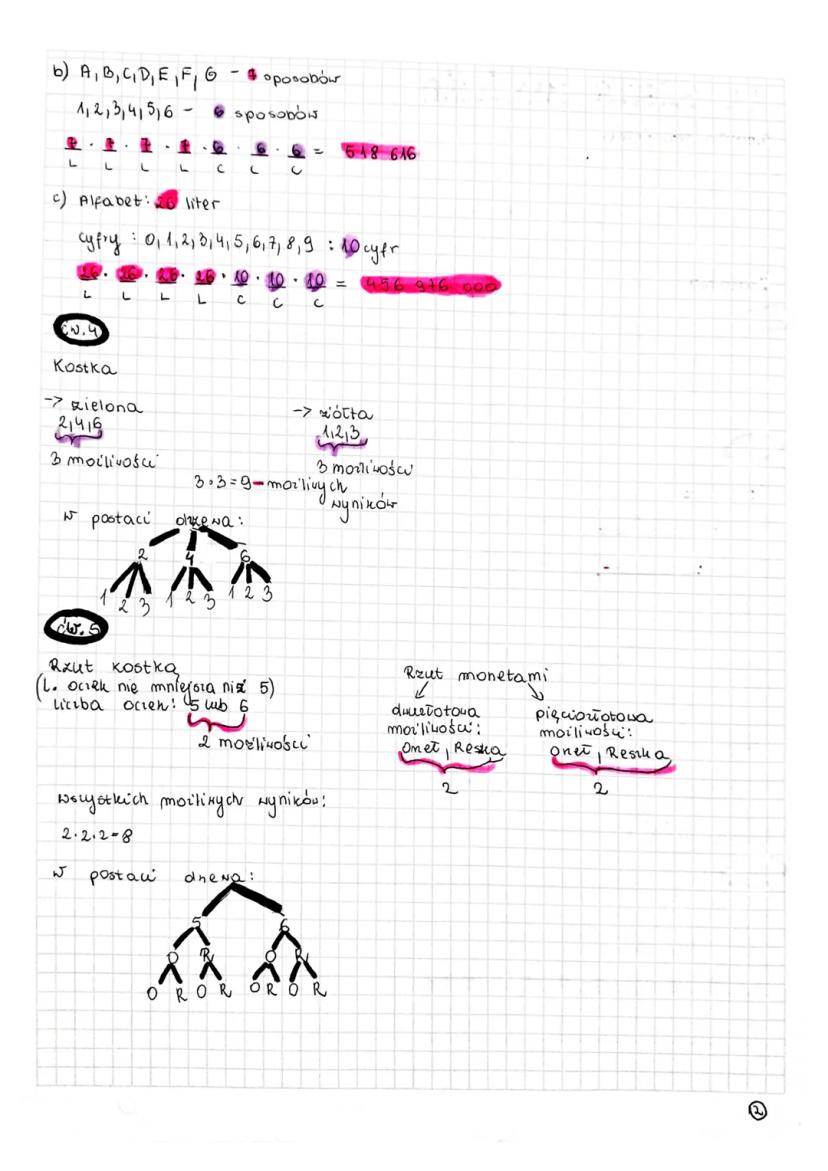 b) A, B, C, D, E, F, G - 7 sposobów
1, 2, 3, 4, 5, 6 - 6 sposobów
7 · 7 · 7 · 7 · 6 · 6 · 6 = 518 616
L L L L C C C
c) Alfabet: 26 liter
cyfry : 0, 1, 2, 3, 4, 5, 6, 7, 8, 9 : 10 cyfr
26 · 26 · 26 · 26 · 10 · 10 · 10 = 456 976 000
L L L L C C C
ćw. 4
Kostka
-> zielona -> żółta
2, 4, 6 1, 2, 3
3 możliwości 3 możliwości
3 · 3 = 9 - możliwych
wyników
w postaci drzewa:
2 4 6
1 2 3 1 2 3 1 2 3
ćw. 5
Rzut kostką
(L. oczek nie mniejsza niż 5)
Liczba oczek: 5 lub 6
2 możliwości
Rzut monetami
dwuzłotowa pięciozłotowa
możliwości: możliwości:
Orzeł, Reszka Orzeł, Reszka
2 2
Wszystkich możliwych wyników:
2 · 2 · 2 = 8
w postaci drzewa:
5 6
O R O R
O R O R O R O R
2